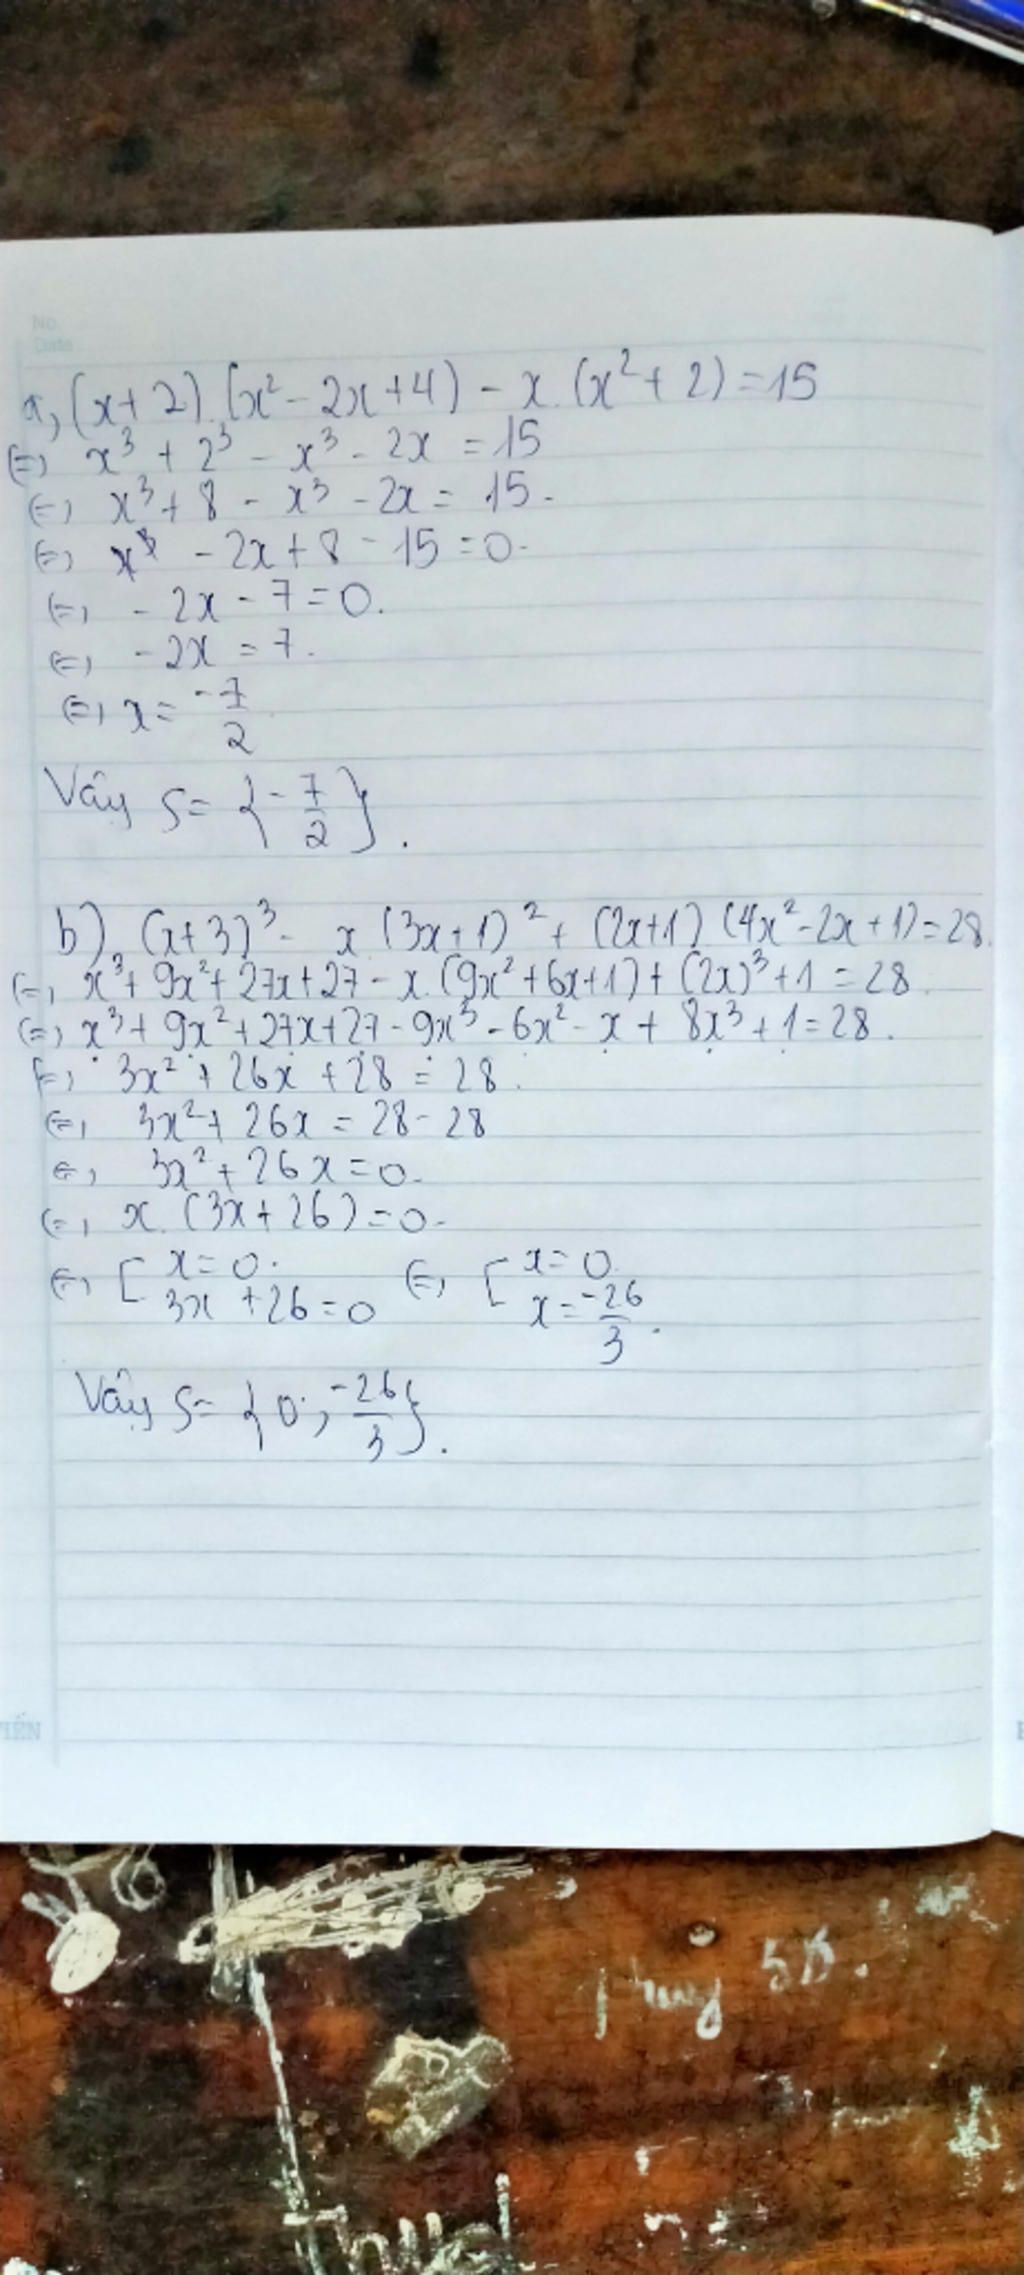 No.
Date
a, (x+2).(x²-2x+4) - x.(x²+2)=15
(=) x³ + 2³ - x³ - 2x = 15
(=) x³ + 8 - x³ - 2x = 15.
(=) - 2x + 8 - 15 = 0.
(=) - 2x - 7 = 0.
(=) - 2x = 7.
(=) x = -7/2
Vây S = {-7/2}.
b) (x+3)³ - x (3x+1)² + (2x+1) (4x²-2x+1)=28.
(=) x³ + 9x² + 27x + 27 - x.(9x²+6x+1) + (2x)³ + 1 = 28.
(=) x³ + 9x² + 27x + 27 - 9x³ - 6x² - x + 8x³ + 1 = 28.
(=) 3x² + 26x + 28 = 28.
(=) 3x² + 26x = 28 - 28
(=) 3x² + 26x = 0.
(=) x.(3x+26) = 0.
(=) [ x = 0. (=) [ x = 0.
3x + 26 = 0 x = -26/3.
Vậy S = {0; -26/3}.
TIẾN
5B.